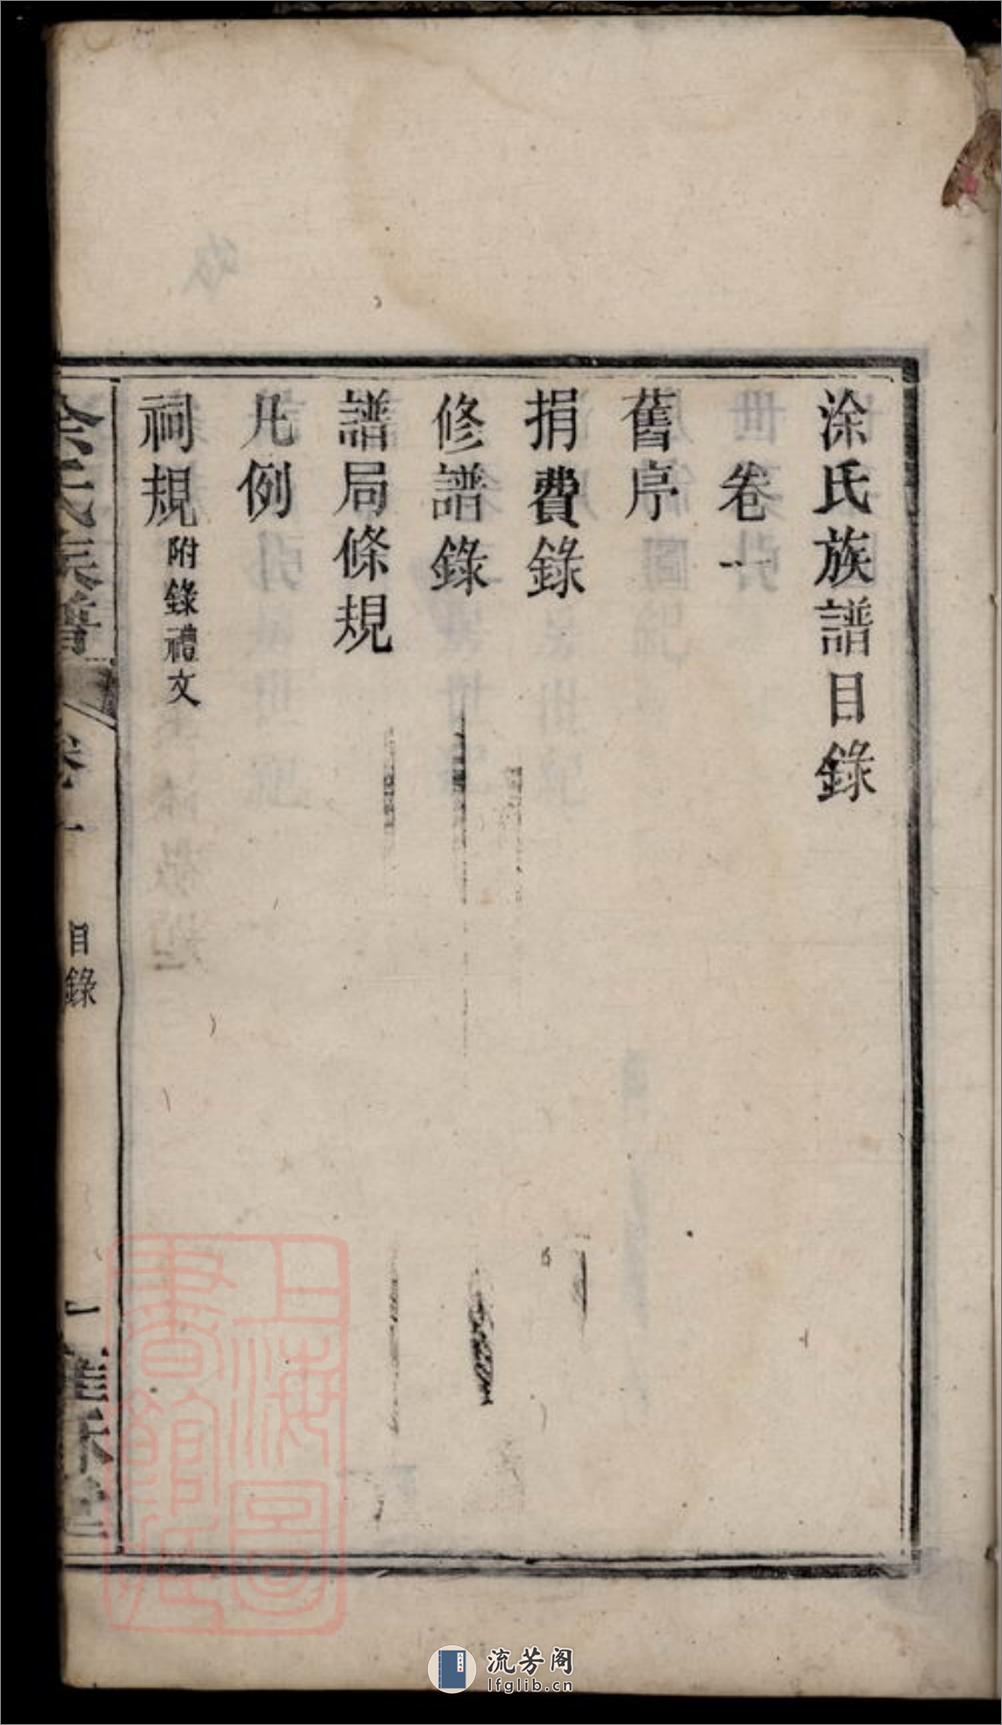 涂氏族譜目錄
卷一
舊序
捐費錄
修譜錄
譜局條規
凡例
祠規附錄禮文
涂氏族譜
卷一
目錄
一
上海圖書館藏
流芳阁
lfglib.cn